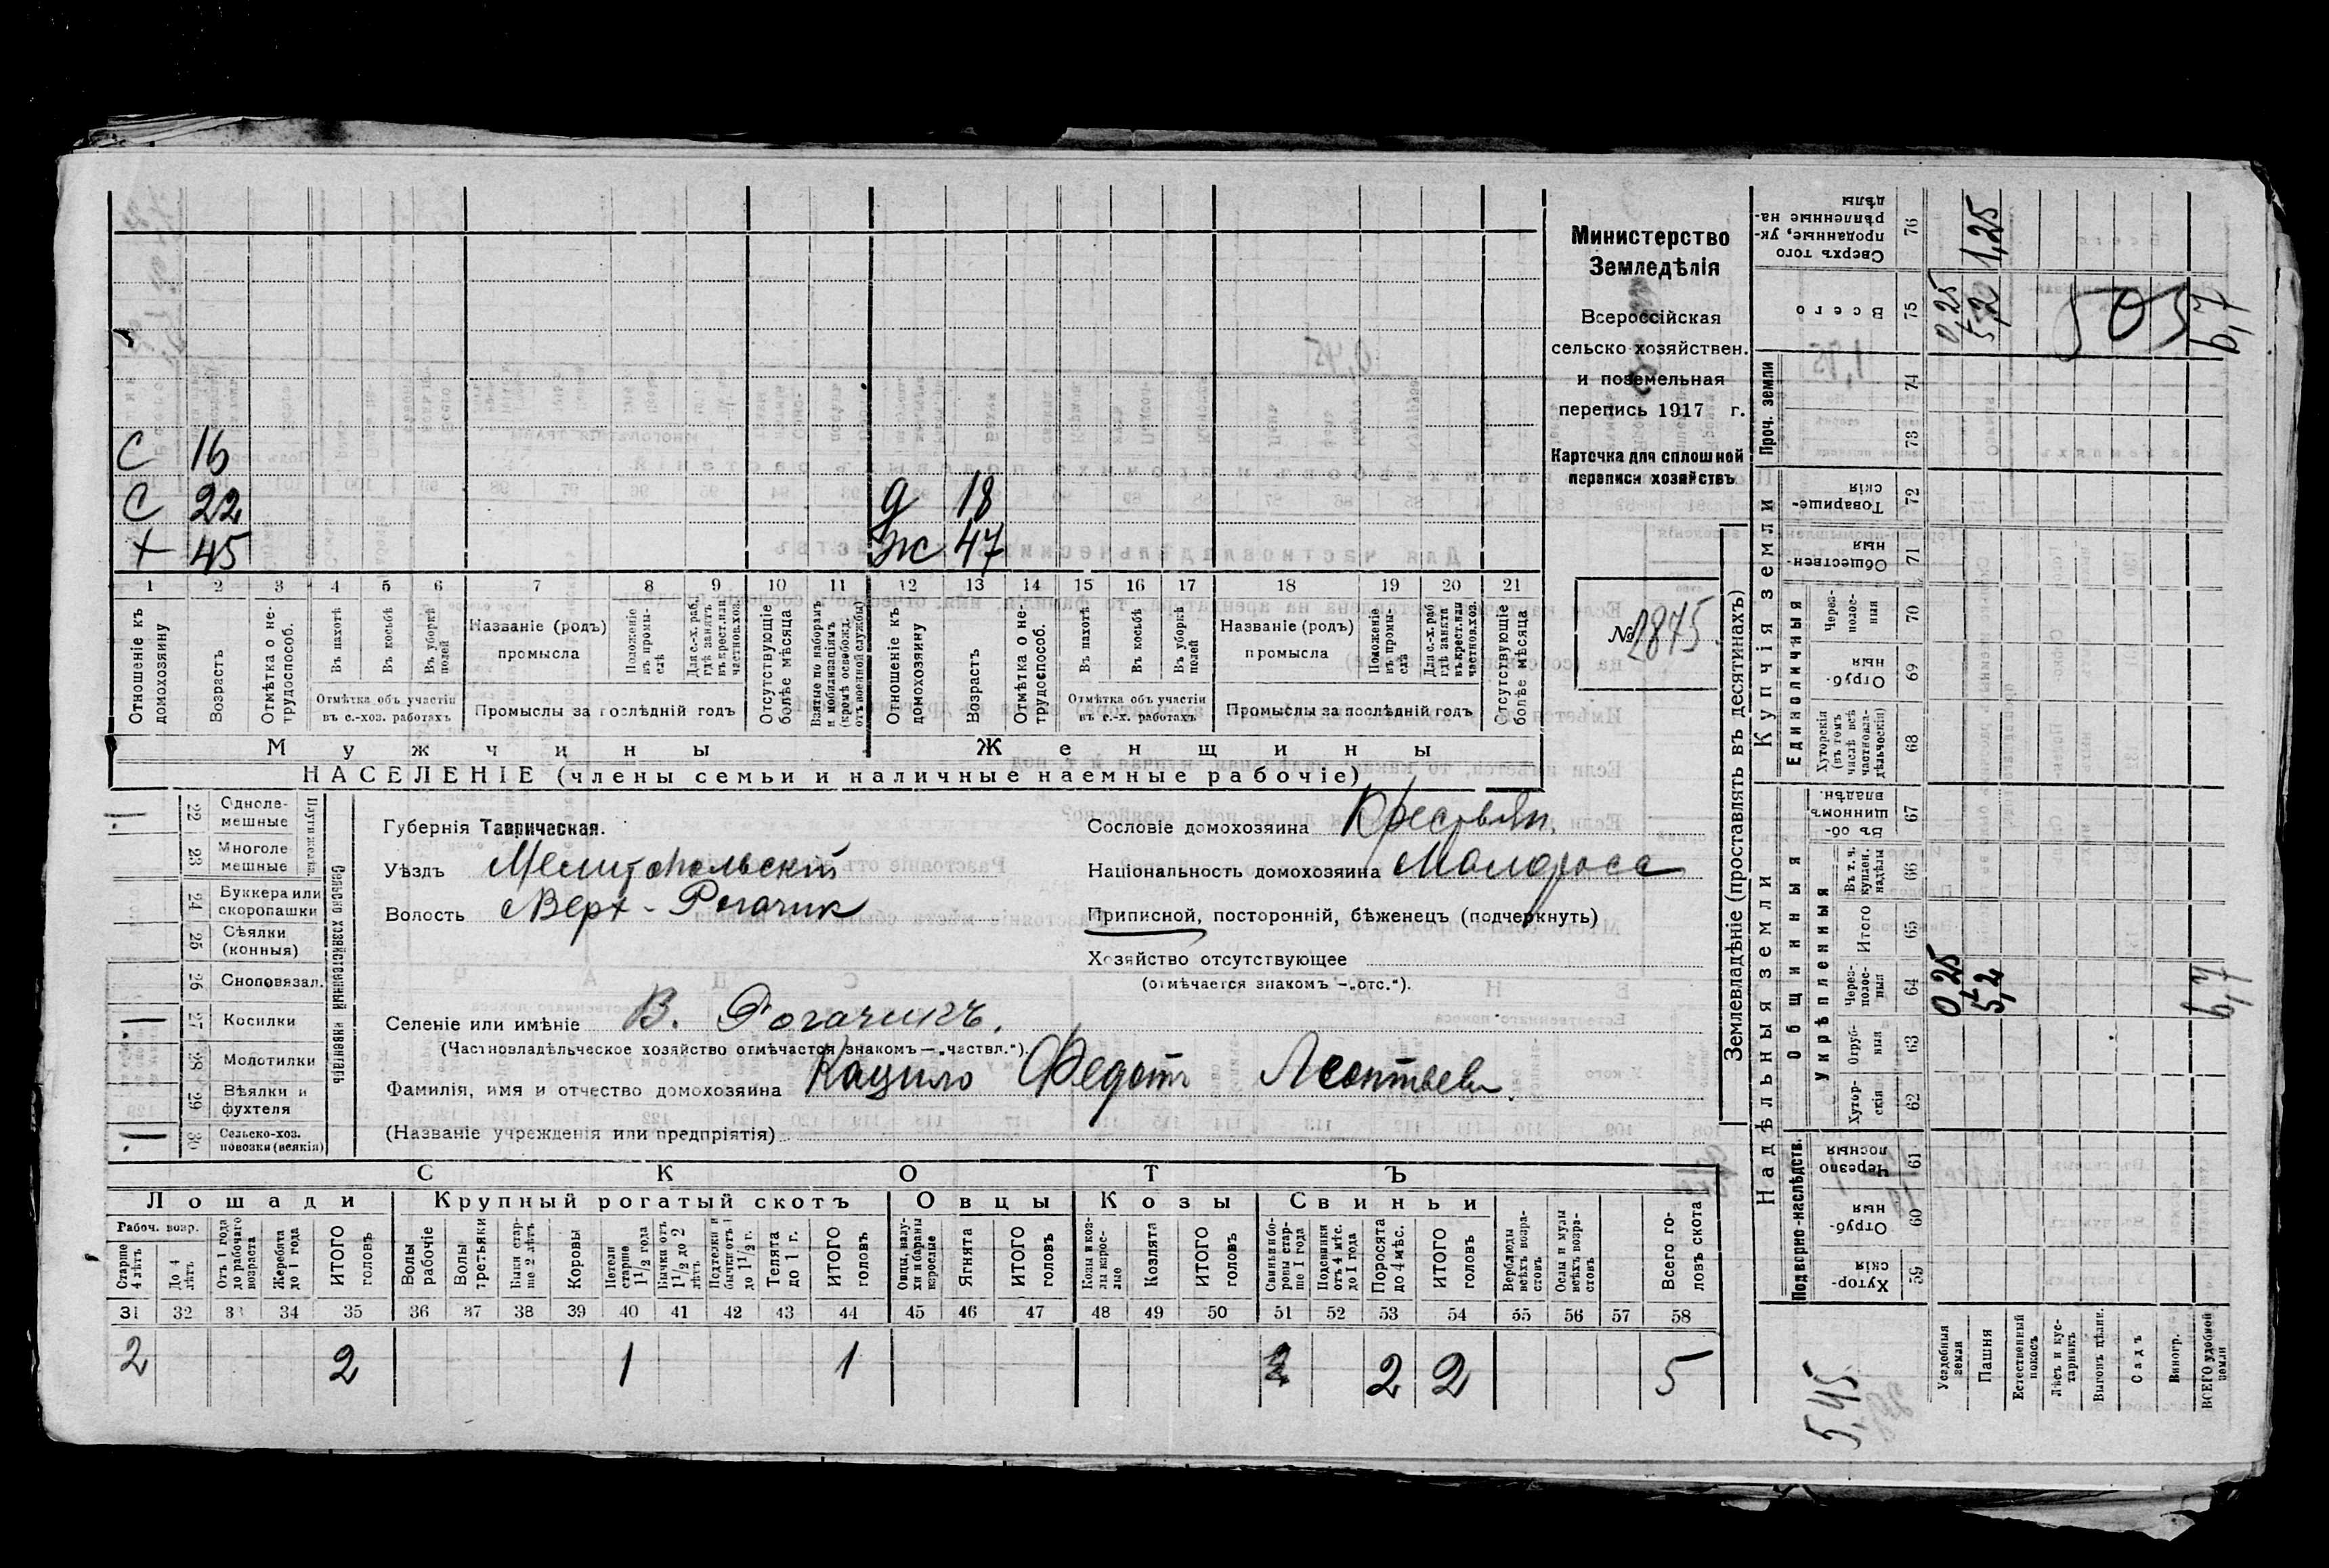 Министерство
Земледѣлія
Всероссійская
сельско хозяйствен.
и поземельная
перепись 1917 г.
Карточка для сплошной
переписи хозяйствъ
№ 2875
С 16
С 22 д 18
+ 45 ж 47
1 2 3 4 5 6 7 8 9 10 11 12 13 14 15 16 17 18 19 20 21
Отношеніе къ домохозяину
Возрастъ
Отмѣтка о не-трудоспособ.
Въ пахотѣ
Въ косьбѣ
Въ уборкѣ полей
Отмѣтка объ участіи въ с.-хоз. работахъ
Названіе (родъ) промысла
Положеніе въ промы-слѣ
Для с.-х. раб. гдѣ занятъ въ крест. или частнов. хоз.
Промыслы за послѣдній годъ
Отсутствующіе болѣе мѣсяца
Взятые по наборамъ и мобилизаціямъ (кромѣ освобожд. отъ военной службы)
Отношеніе къ домохозяину
Возрастъ
Отмѣтка о не-трудоспособ.
Въ пахотѣ
Въ косьбѣ
Въ уборкѣ полей
Отмѣтка объ участіи въ с.-х. работахъ
Названіе (родъ) промысла
Положеніе въ промы-слѣ
Для с.-х. раб. гдѣ занята въ крест. или частнов. хоз.
Промыслы за послѣдній годъ
Отсутствующіе болѣе мѣсяца
Мужчины Женщины
НАСЕЛЕНІЕ (члены семьи и наличные наемные рабочіе)
Сельско хозяйственный инвентарь
22 Одноле-мешные
23 Многоле мешные
24 Буккера или скоропашки
25 Сѣялки (конныя)
26 Сноповязал.
27 Косилки
28 Молотилки
29 Вѣялки и фухтеля
30 Сельско-хоз. повозки (всякія)
Губернія Таврическая.
Уѣздъ Мелитопольскій
Волость Верх-Рогачик
Сословіе домохозяина Крестьян.
Національность домохозяина Малоросс
Приписной, посторонній, бѣженецъ (подчеркнуть)
Хозяйство отсутствующее
(отмѣчается знакомъ —„отс.“).
Селеніе или имѣніе В. Рогачикъ.
(Частновладѣльческое хозяйство отмѣчается знакомъ —„частвл.“).
Фамилія, имя и отчество домохозяина Кацило Федотъ Леонтьев.
(Названіе учрежденія или предпріятія)
СКОТЪ
Лошади Крупный рогатый скотъ Овцы Козы Свиньи
Рабоч. возр.
Старше 4 лѣтъ
До 4 лѣтъ
Отъ 1 года до рабочаго возраста
Жеребята до 1 года
ИТОГО головъ
Волы рабочіе
Волы третьяки
Быки стар-ше 2 лѣтъ
Коровы
Нетели старше 1 1/2 года
Бычки отъ 1 1/2 до 2 лѣтъ
Подтелки и бычки отъ 1 до 1 1/2 г.
Телята до 1 г.
ИТОГО головъ
Овцы, валу-хи и бараны взрослые
Ягнята
ИТОГО головъ
Козы и коз-лы взрос-лые
Козлята
ИТОГО головъ
Свиньи и бо-ровы стар-ше 1 года
Подсвинки отъ 4 мѣс. до 1 года
Поросята до 4 мѣс.
ИТОГО головъ
Верблюды всѣхъ возра-стовъ
Ослы и мулы всѣхъ возра-стовъ
Всего го-ловъ скота
31 32 33 34 35 36 37 38 39 40 41 42 43 44 45 46 47 48 49 50 51 52 53 54 55 56 57 58
2 2 1 1 2 2 5
Землевладѣніе (проставлять въ десятинахъ)
Надѣльныя земли Купчія земли Проч. земли
Подворно-наслѣдств. Общинныя Единоличныя
Укрѣпленныя
Хутор-скія 59
Отруб-ныя 60
Черезпо лосныя 61
Хутор-скія 62
Отруб-ныя 63
Через-полос-ныя 64
Итого 65
Въ т. ч. куплен. надѣлы 66
Въ об-щинномъ владѣн. 67
Хуторскія (въ томъ числѣ всѣ частновла-дѣльческія) 68
Отруб-ныя 69
Через-полос-ныя 70
Обществен-ныя 71
Товарище-скія 72
73
74
Всего 75
Сверхъ того проданные, ук-рѣпленные на-дѣлы 76
Усадебныя земли 0,25 0,25
Пашня 5,2 5,2 1,25
Естественный покосъ
Лѣсъ и кус-тарникъ
Выгонъ цѣлин.
Садъ
Виногр.
ВСЕГО удобной земли 6,7 6,7
505
5,45